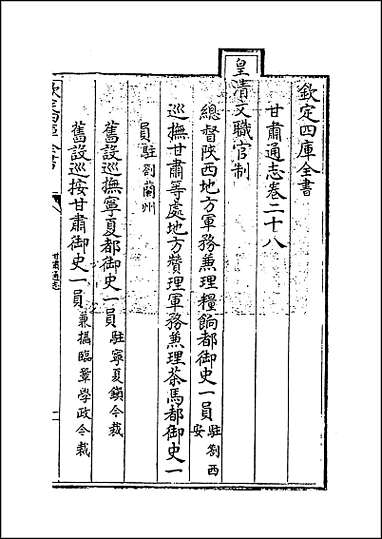 欽定四庫全書
甘肅通志卷二十八
皇清文職官制
總督陜西地方軍務兼理糧餉都御史一員駐劄西安
巡撫甘肅等處地方贊理軍務兼理茶馬都御史一
員駐劄蘭州
舊設巡撫寧夏都御史一員駐寧夏鎮今裁
舊設巡按甘肅御史一員兼攝臨鞏學政今裁
甘肅通志